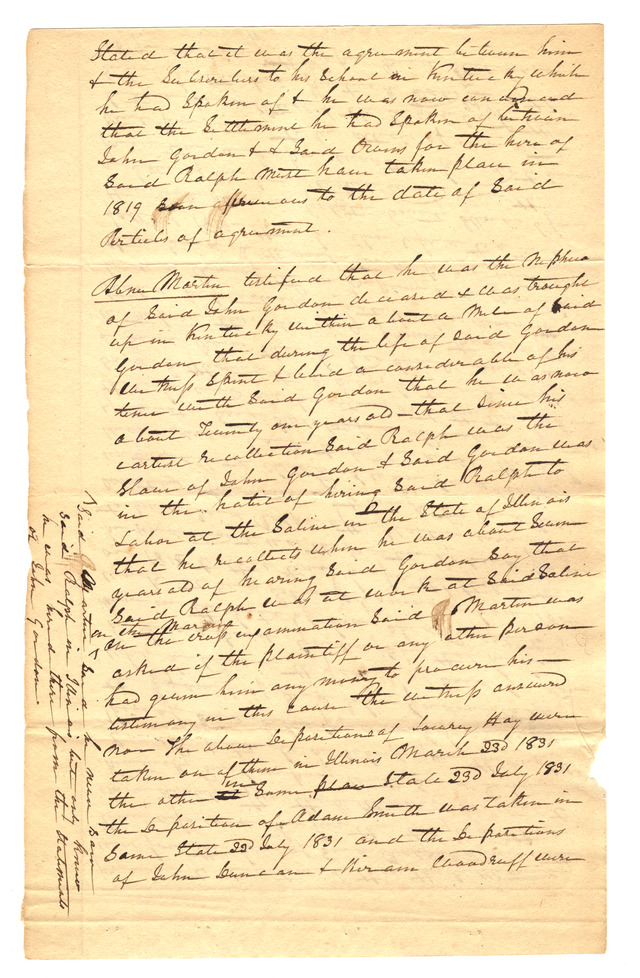 Stated that it was the agreement between him
& the Subscribers to his School in Kentucky which
he had Spoken of & he was now convinced
that the Settlement he had Spoken of between
John Gordon & Said Owens for the hire of
Said Ralph must have taken place in
1819 to the date of Said
Articles of agreement.
Abner Martin testified that he was the nephew
of Said John Gordon deceased & was brought
up in Kentucky within about a mile of Said
Gordon that during the life of Said Gordon
Witness Spent & lived a considerable of his
time with Said Gordon that he was now
about Twenty one years old – that Since his
earliest recollection Said Ralph was the
Slave of John Gordon & Said Gordon was
in the habit of hiring Said Ralph to
Labor at the Saline in the State of Illinois
that he recollects when he was about Seven
years old of hearing Said Gordon Say that
Said Ralph was at work at Said Saline
on the Margin
on the cross examination Said Martin was
asked if the plaintiff or any other person
had given him any money to procure his
testimony in this cause the witness answered
non The above Depositions of Lowrey Hay were
taken one of them in Illinois March 23d 1831
the other in Same State 23d July 1831
the Deposition of Adam Smith was taken in
Same State 23d July 1831 and the Depositions
of John Duncan & Hiram Woodruff were
Said Martin Said he never Saw
Said Ralph in Illinois but only knew
he was hired there from the Statements
of John Gordon.